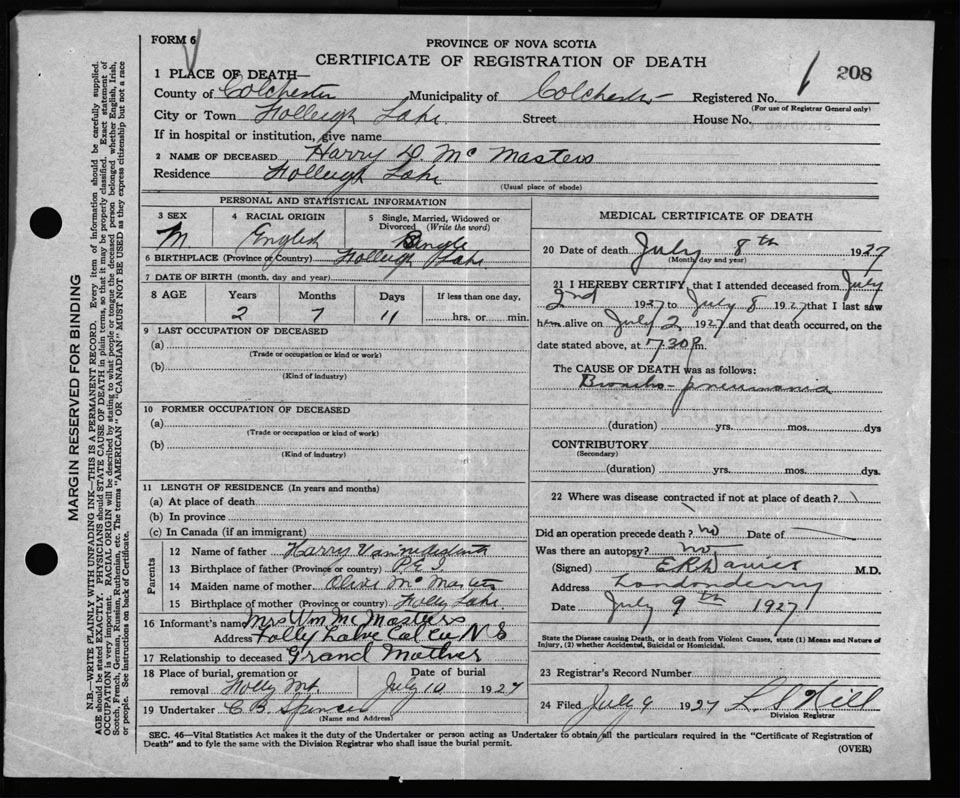 FORM 6
PROVINCE OF NOVA SCOTIA
CERTIFICATE OF REGISTRATION OF DEATH
208
1 PLACE OF DEATH—
County of Colchester Municipality of Colchester Registered No.
(For use of Registrar General only)
City or Town Folleigh Lake Street House No.
If in hospital or institution, give name
2 NAME OF DECEASED Harry D. McMasters
Residence Folleigh Lake
(Usual place of abode)
PERSONAL AND STATISTICAL INFORMATION
3 SEX M
4 RACIAL ORIGIN English
5 Single, Married, Widowed or Divorced (Write the word) Single
6 BIRTHPLACE (Province or Country) Folleigh Lake
7 DATE OF BIRTH (month, day and year)
8 AGE Years Months Days If less than one day,
2 7 11 hrs. or min.
9 LAST OCCUPATION OF DECEASED
(a)
(Trade or occupation or kind or work)
(b)
(Kind of industry)
10 FORMER OCCUPATION OF DECEASED
(a)
(Trade or occupation or kind of work)
(b)
(Kind of industry)
11 LENGTH OF RESIDENCE (In years and months)
(a) At place of death
(b) In province
(c) In Canada (if an immigrant)
Parents
12 Name of father Harry
13 Birthplace of father (Province or country) P.E.I
14 Maiden name of mother Olive McMasters
15 Birthplace of mother (Province or country) Folly Lake
16 Informant's name Mrs Wm McMasters
Address Folly Lake Col Co N S
17 Relationship to deceased Grand Mother
18 Place of burial, cremation or removal Folly Mt. Date of burial July 10 1927
19 Undertaker C B Spencer
(Name and Address)
MEDICAL CERTIFICATE OF DEATH
20 Date of death July 8th 1927
(Month day and year)
21 I HEREBY CERTIFY, that I attended deceased from July
2nd 1927 to July 8 1927 that I last saw
him alive on July 2 1927 and that death occurred, on the
date stated above, at 7.30 P.m.
The CAUSE OF DEATH was as follows:
Broncho-pneumonia
(duration) yrs. mos. dys
CONTRIBUTORY
(Secondary)
(duration) yrs. mos. dys.
22 Where was disease contracted if not at place of death?
Did an operation precede death? no Date of
Was there an autopsy? no
(Signed) E R Davies M.D.
Address Londonderry
Date July 9th 1927
State the Disease causing Death, or in death from Violent Causes, state (1) Means and Nature of
Injury, (2) whether Accidental, Suicidal or Homicidal.
23 Registrar's Record Number
24 Filed July 9 1927 L S Hill
Division Registrar
SEC. 46—Vital Statistics Act makes it the duty of the Undertaker or person acting as Undertaker to obtain all the particulars required in the "Certificate of Registration of
Death" and to fyle the same with the Division Registrar who shall issue the burial permit.
(OVER)
MARGIN RESERVED FOR BINDING
N.B.—WRITE PLAINLY WITH UNFADING INK—THIS IS A PERMANENT RECORD. Every item of information should be carefully supplied.
AGE should be stated EXACTLY. PHYSICIANS should STATE CAUSE OF DEATH in plain terms, so that it may be properly classified. Exact statement of
OCCUPATION is very important. RACIAL ORIGIN will be described by stating to what people or tongue the deceased person belonged whether English, Irish,
Scotch, French, German, Russian, Ruthenian, etc. The terms "AMERICAN" OR "CANADIAN" MUST NOT BE USED as they express citizenship but not a race
or people. See instructions on back of Certificate.